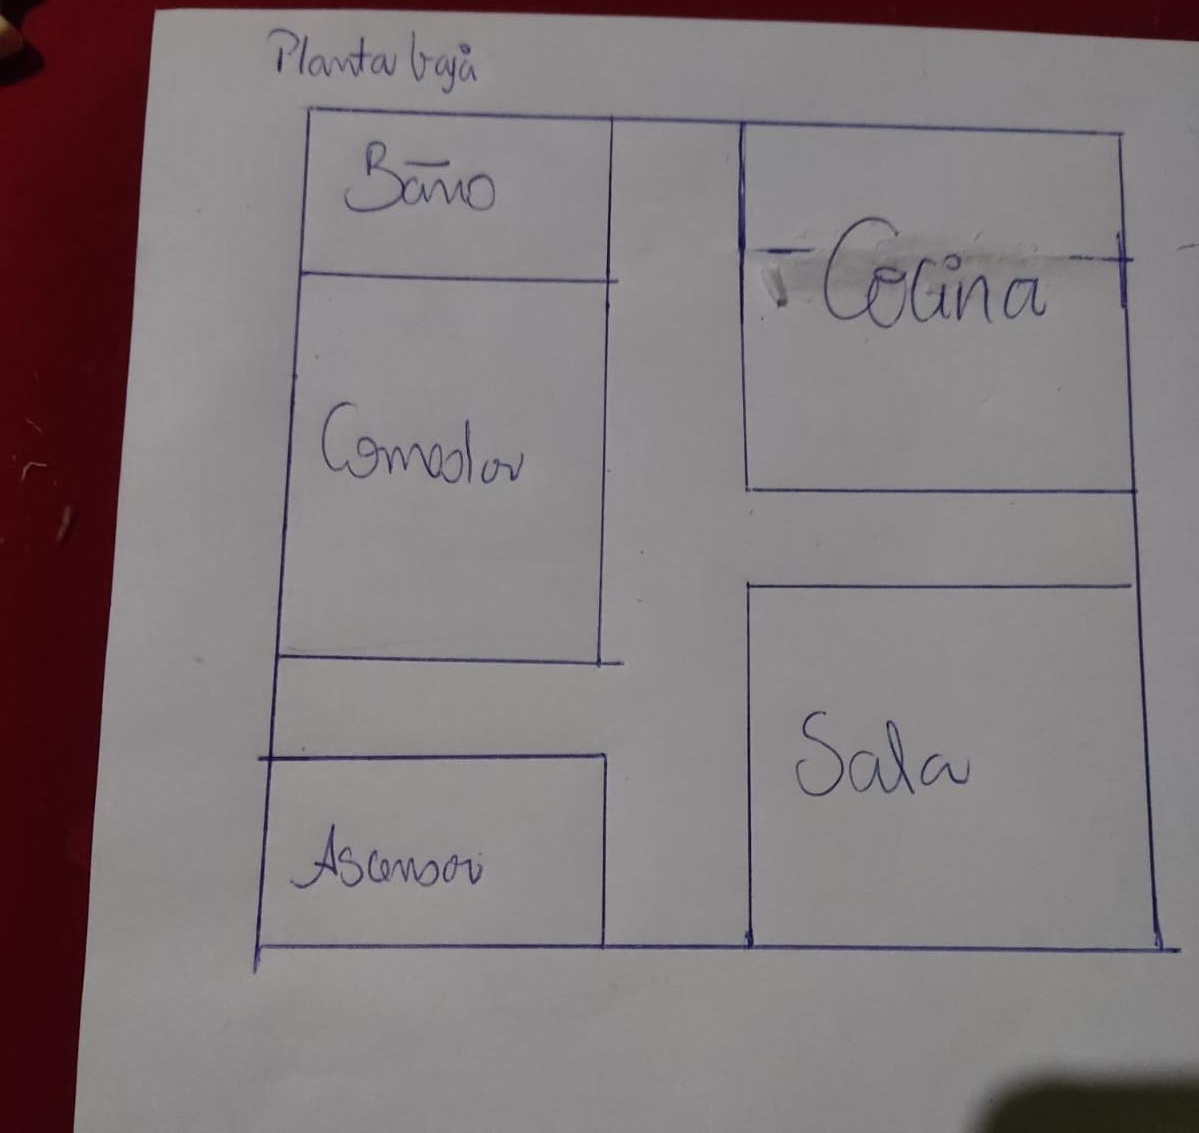 Planta baja
Baño
Cocina
Comedor
Sala
Ascensor